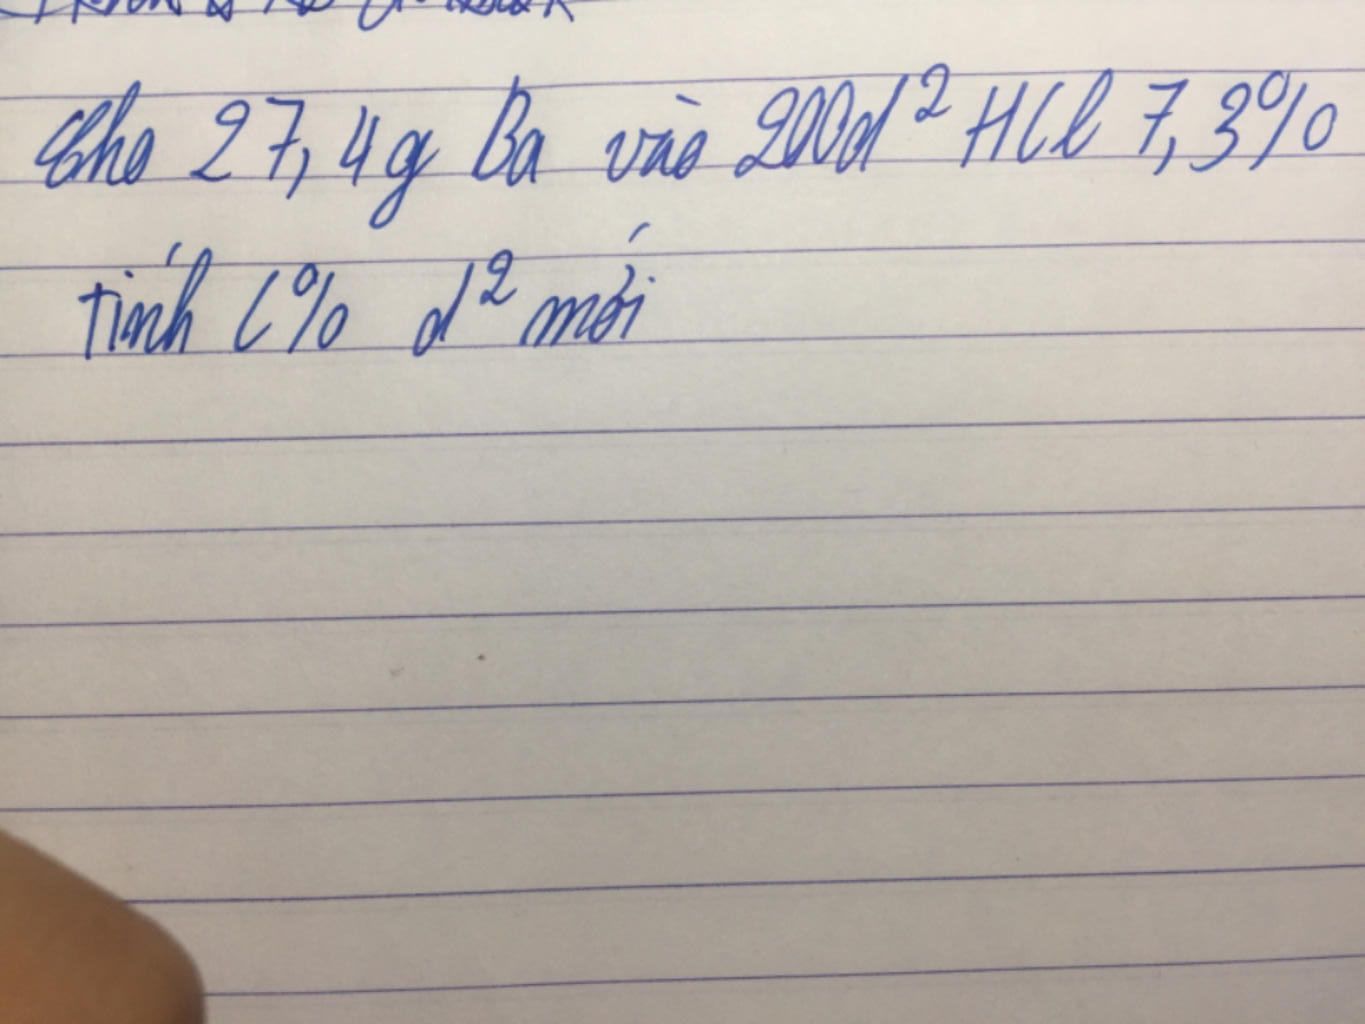 Cho 27,4g Ba vào 200d² HCl 7,3%
tính C% d² mới